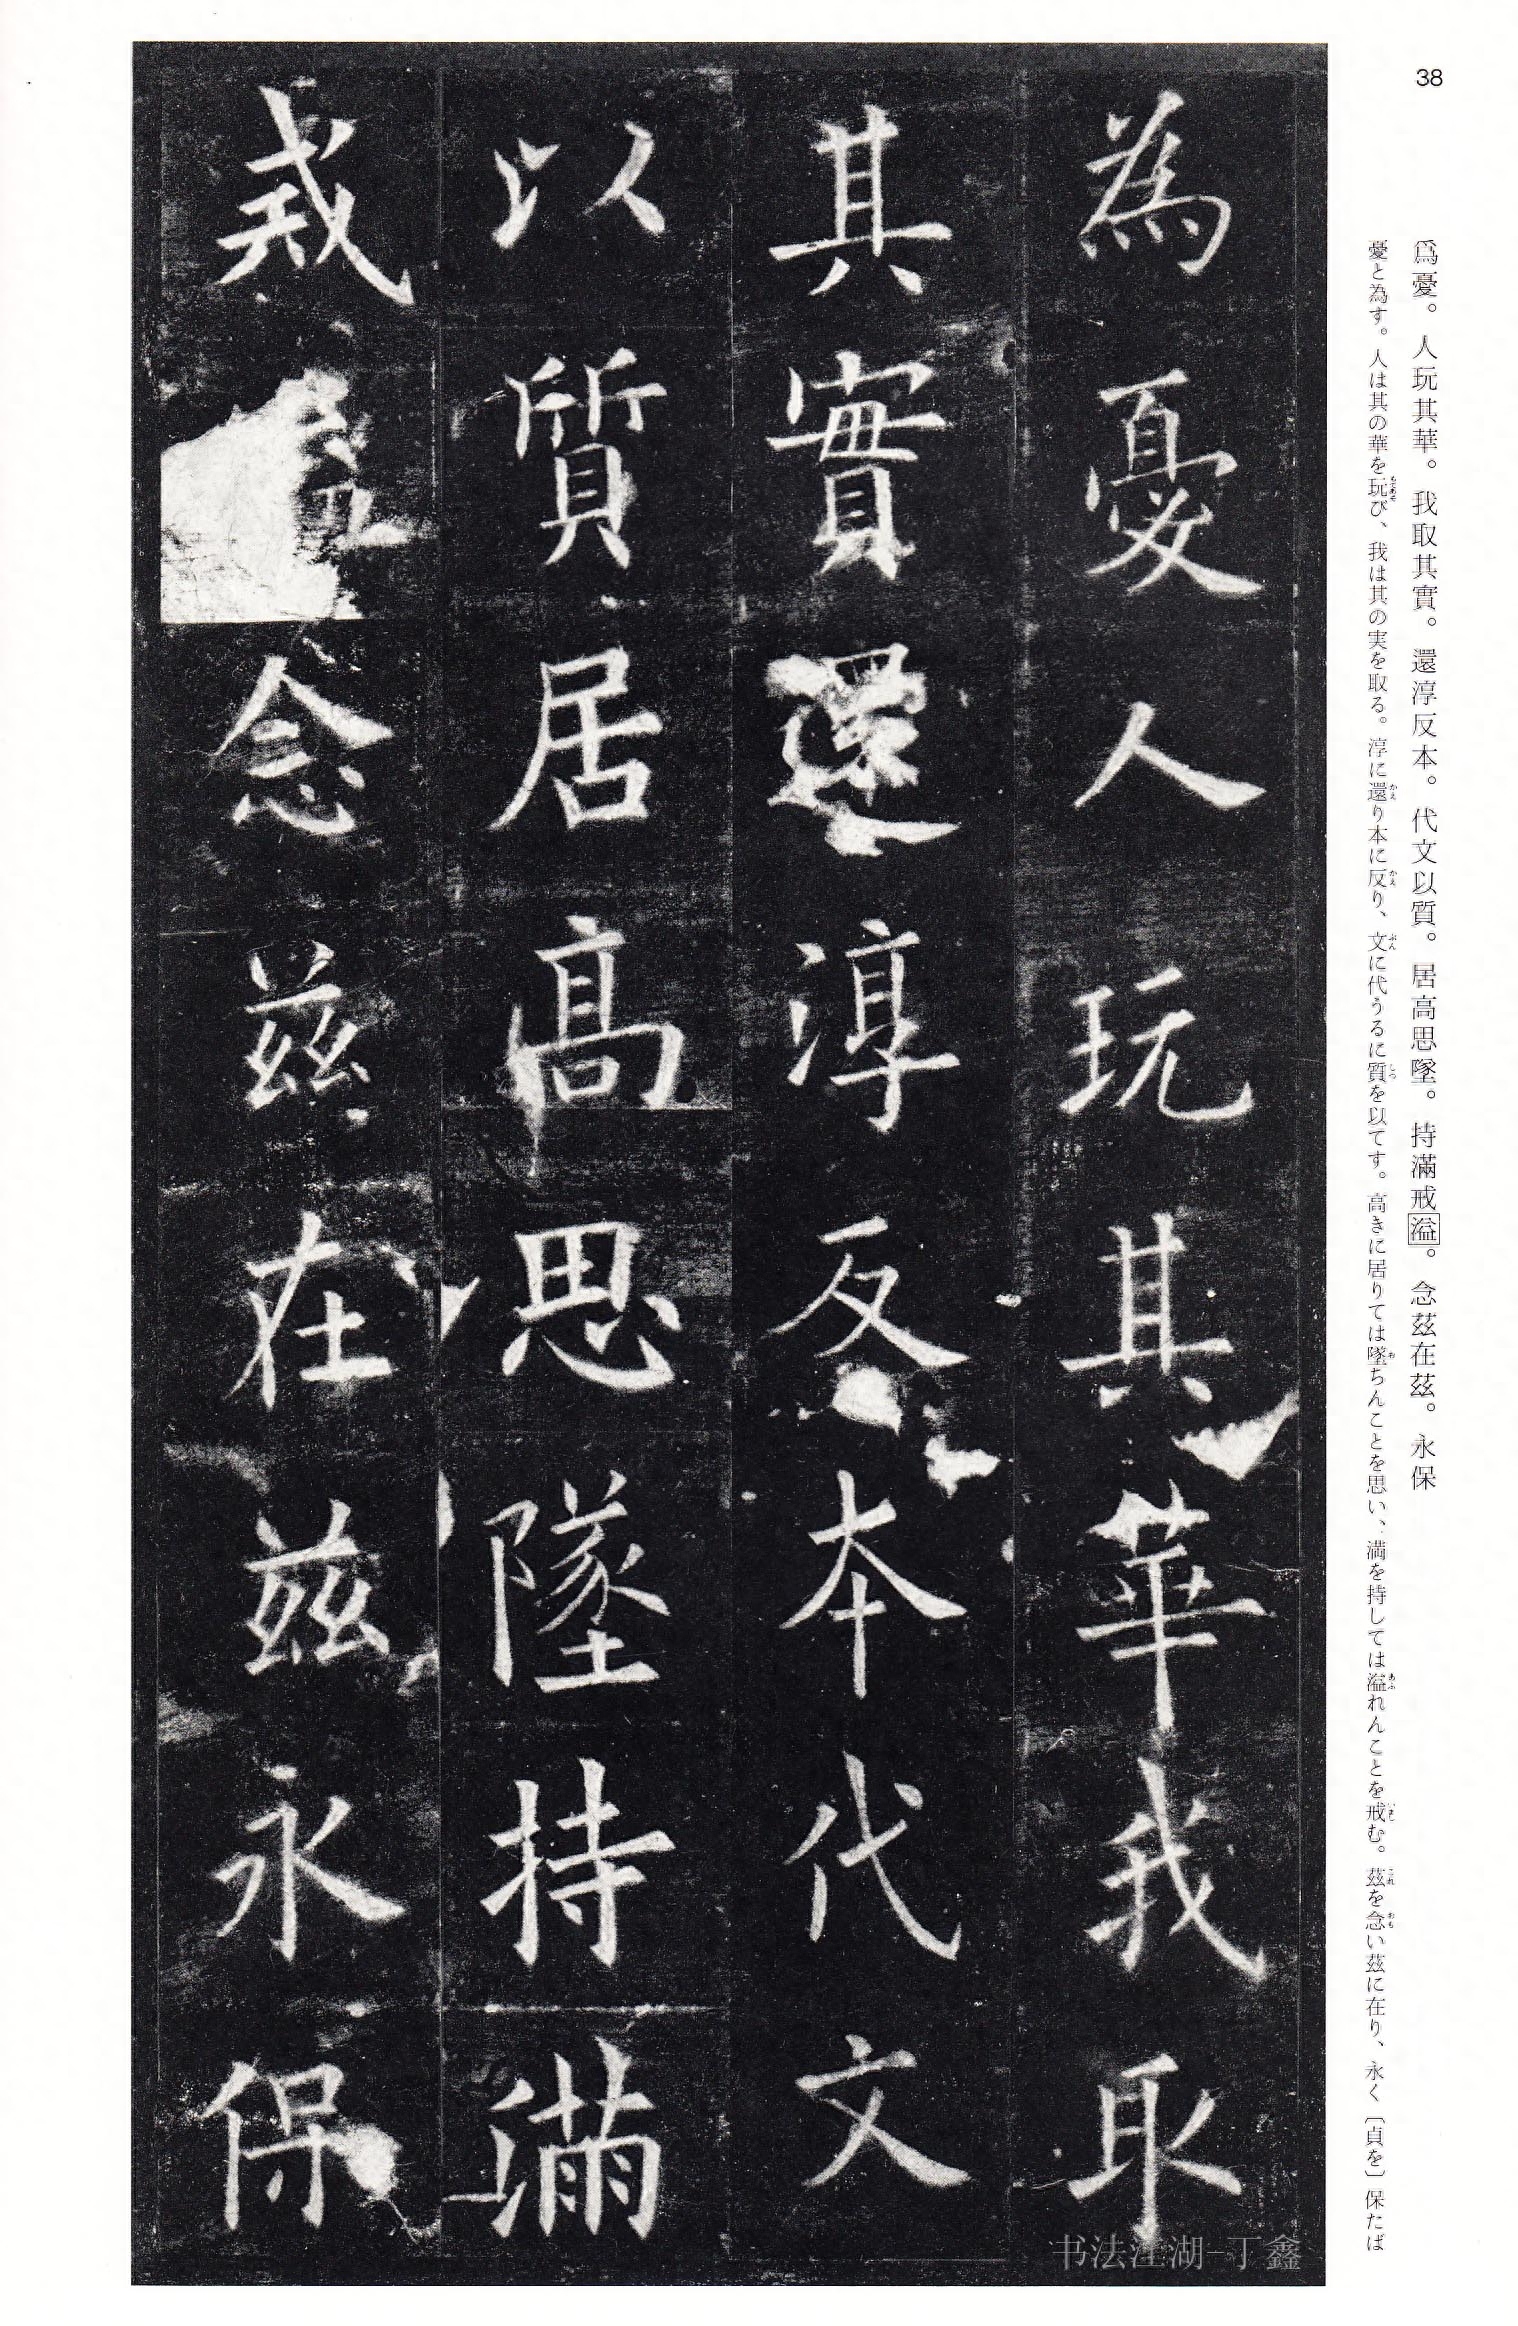 38
爲憂。人玩其華。我取其實。還淳反本。代文以質。居高思墜。持滿戒溢。念茲在茲。永保
憂と為す。人は其の華を玩び、我は其の実を取る。淳に還り本に反り、文に代うるに質を以てす。高きに居りては墜ちんことを思い、満を持しては溢れんことを戒む。茲を念い茲に在り、永く〔貞を〕保たば
為憂人玩其華我取
其實還淳反本代文
以質居高思墜持滿
戒溢念茲在茲永保
书法江湖-丁鑫